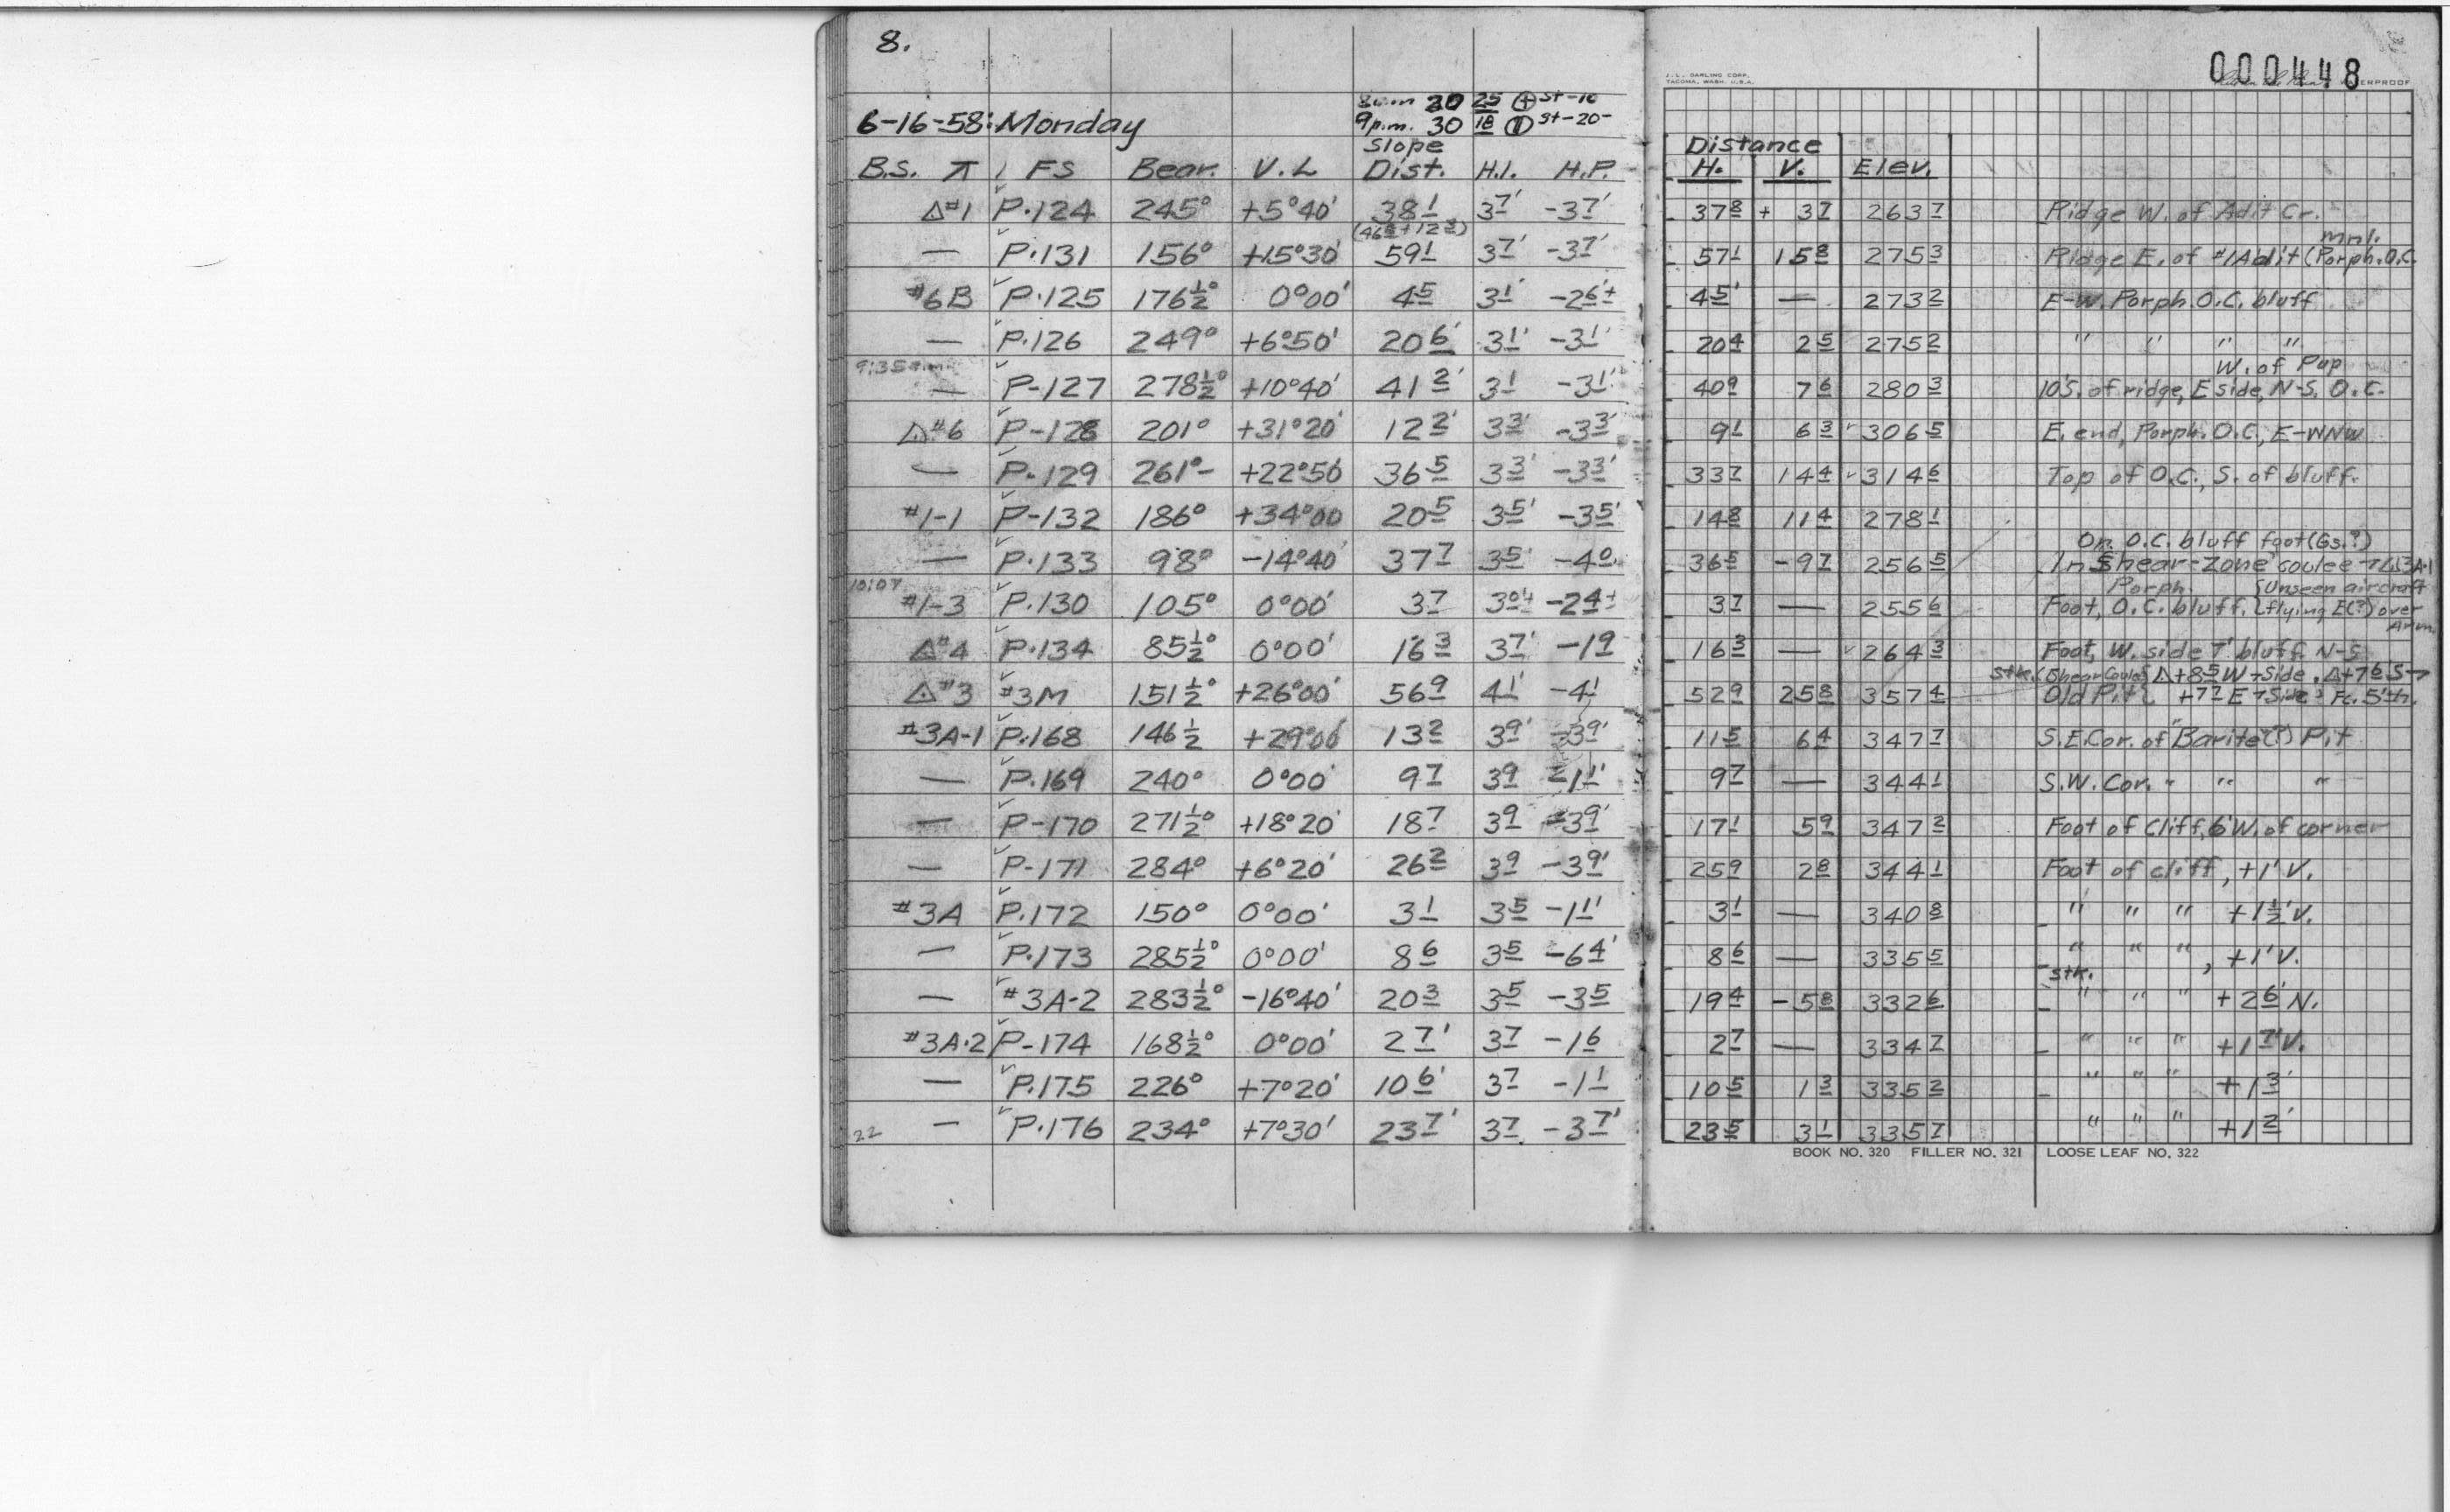 8.
J. L. DARLING CORP.
TACOMA, WASH. U.S.A.
000448
8 a.m 30 25 ⊕ St-10
6-16-58: Monday 9 p.m. 30 18 St-20-
Slope Distance
B.S. ⊼ FS Bear. V.L Dist. H.I. H.P. H. V. Elev.
△#1 P.124 245° +5°40' 38 1 3 7' -3 7' 37 8 + 3 7 263 7 Ridge W. of Adit Cr.
(46 8 + 12 3) mnl.
— P.131 156° +15°30' 59 1 3 7' -3 7' 57 1 15 8 275 3 Ridge E. of #1 Adit (Porph. O.C.
#6B P.125 176½° 0°00' 4 5 3 1' -2 6'± 4 5' — 273 2 E-W. Porph. O.C. bluff
— P.126 249° +6°50' 20 6' 3 1' -3 1' 20 4 2 5 275 2 " " " "
9:35 a.m. W. of Pup
— P-127 278½° +10°40' 41 2' 3 1 -3 1' 40 9 7 6 280 3 10'S. of ridge, E side, N-S. O.C.
△#6 P-128 201° +31°20' 12 2' 3 3' -3 3' 9 1 6 3 306 5 E. end, Porph. O.C., E-WNW
— P.129 261°- +22°50' 36 5 3 3' -3 3' 33 7 14 4 314 6 Top of O.C., S. of bluff.
#1-1 P-132 186° +34°00' 20 5 3 5' -3 5' 14 8 11 4 278 1
On O.C. bluff foot (Gs.?)
— P.133 98° -14°40' 37 7 3 5' -4 0 36 5 -9 7 256 5 In Shear-zone coulee → 3A-1
10:07 Porph. {Unseen aircraft
#1-3 P.130 105° 0°00' 3 7 3 0± -2 4± 3 7 — 255 6 Foot, O.C. bluff. {flying E(?) over
△#4 P.134 85½° 0°00' 16 3 3 7' -1 9 16 3 — 264 3 Foot, W. side 7' bluff N-S
stk. (Shear Coulee) △+8 5 W→Side. △+7 6' S→
△#3 #3M 151½° +26°00' 56 9 4 1' -4 1 52 9 25 8 357 4 Old Pit} +7 7 E→Side
#3A-1 P.168 146½ +29°00' 13 2 3 9' -3 9' 11 5 6 4 347 7 S.E. Cor. of "Barite(?) Pit
— P.169 240° 0°00' 9 7 3 9 -1 1' 9 7 — 344 1 S.W. Cor. " " "
— P-170 271½° +18°20' 18 7 3 9 -3 9' 17 1 5 9 347 2 Foot of Cliff, 6'W. of corner
— P-171 284° +6°20' 26 2 3 9 -3 9' 25 9 2 8 344 1 Foot of cliff, +1' V.
#3A P.172 150° 0°00' 3 1 3 5 -1 1' 3 1 — 340 8 " " " +1½' V.
— P.173 285½° 0°00' 8 6 3 5 -6 4' 8 6 — 335 5 " " " , +1' V.
stk.
— #3A-2 283½° -16°40' 20 3 3 5 -3 5 19 4 -5 8 332 6 " " " +2 6' N.
#3A-2 P-174 168½° 0°00' 2 7' 3 7 -1 6 2 7 — 334 7 " " " +1 7' V.
— P.175 226° +7°20' 10 6' 3 7 -1 1 10 5 1 3 335 2 " " " +1 3'
22 — P.176 234° +7°30' 23 7' 3 7 -3 7' 23 5 3 1 335 7 " " " +1 2'
BOOK NO. 320 FILLER NO. 321 LOOSE LEAF NO. 322